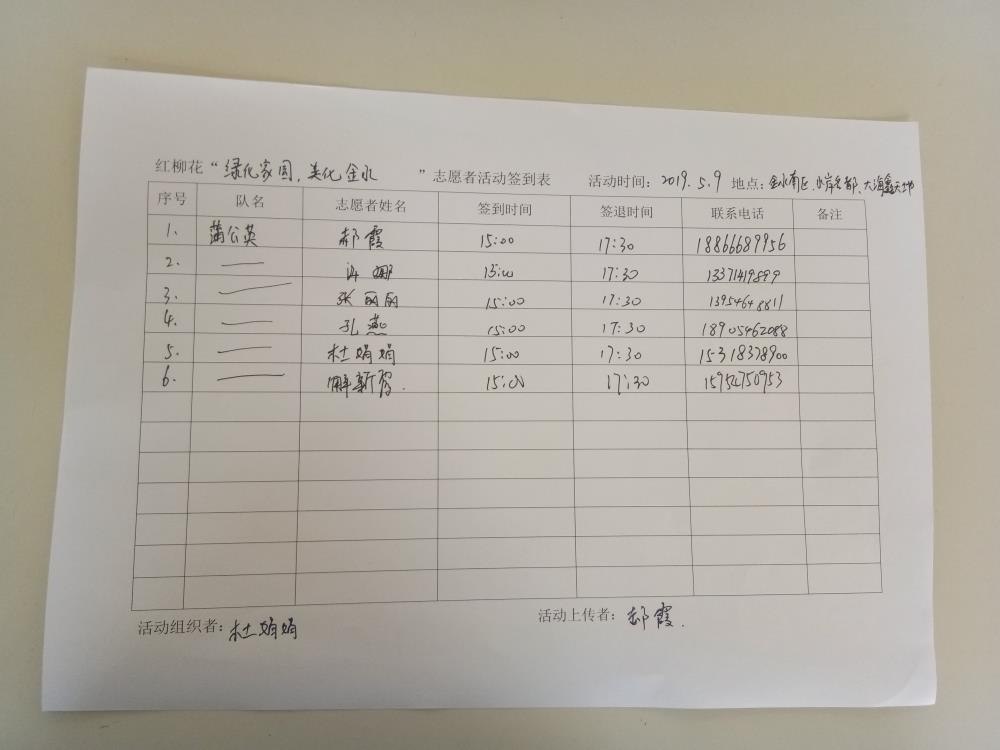 红柳花“绿化家园,美化金水”志愿者活动签到表 活动时间:2019.5.9 地点:金水南区.水岸名都.大海鑫天地
序号 队名 志愿者姓名 签到时间 签退时间 联系电话 备注
1. 蒲公英 郝霞 15:00 17:30 18866689956
2. —— 娜 15:00 17:30 13371419899
3. —— 张丽丽 15:00 17:30 13954648811
4. —— 孔燕 15:00 17:30 18905462088
5. —— 杜娟娟 15:00 17:30 15318378900
6. —— 解新 15:00 17:30 15954750953
活动组织者:杜娟娟 活动上传者:郝霞.